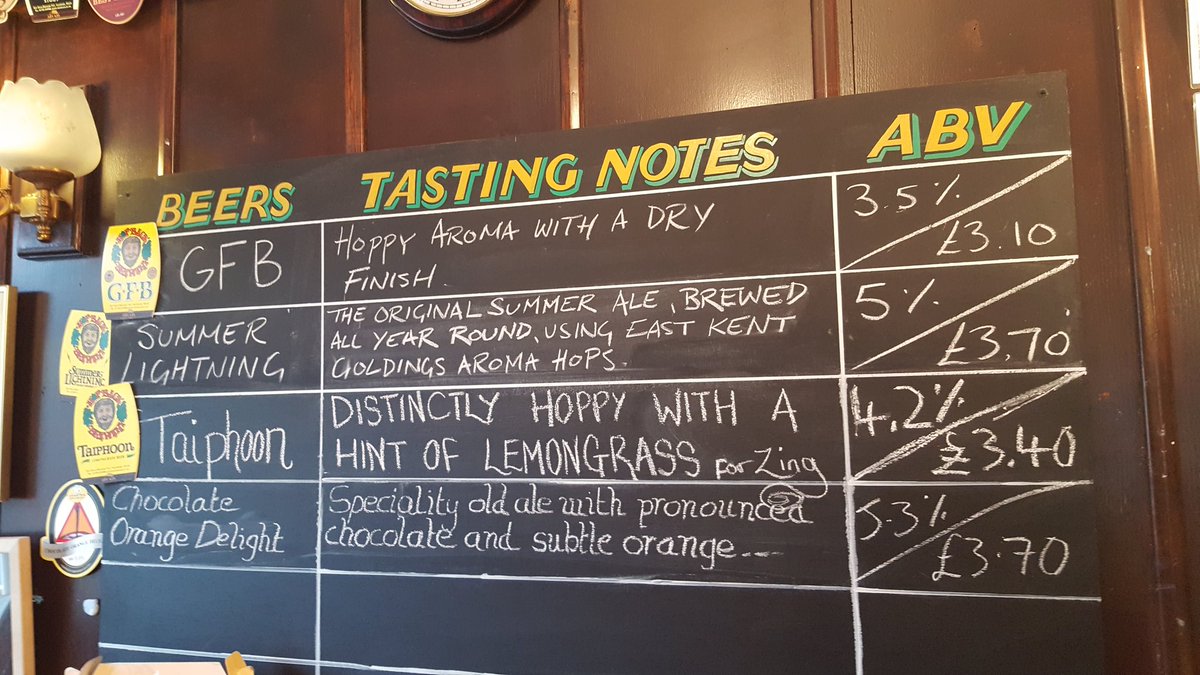 BEERS TASTING NOTES ABV
GFB
HOPPY AROMA WITH A DRY
FINISH.
3.5%
£3.10
SUMMER
LIGHTNING
THE ORIGINAL SUMMER ALE, BREWED
ALL YEAR ROUND, USING EAST KENT
GOLDINGS AROMA HOPS.
5%
£3.70
Taiphoon
DISTINCTLY HOPPY WITH A
HINT OF LEMONGRASS for Zing
4.2%
£3.40
Chocolate
Orange Delight
Speciality old ale with pronounced
chocolate and subtle orange....
5.3%
£3.70
HOP BACK
BREWERY
GFB
SUMMER
LIGHTNING
HOP BACK
BREWERY
TAIPHOON